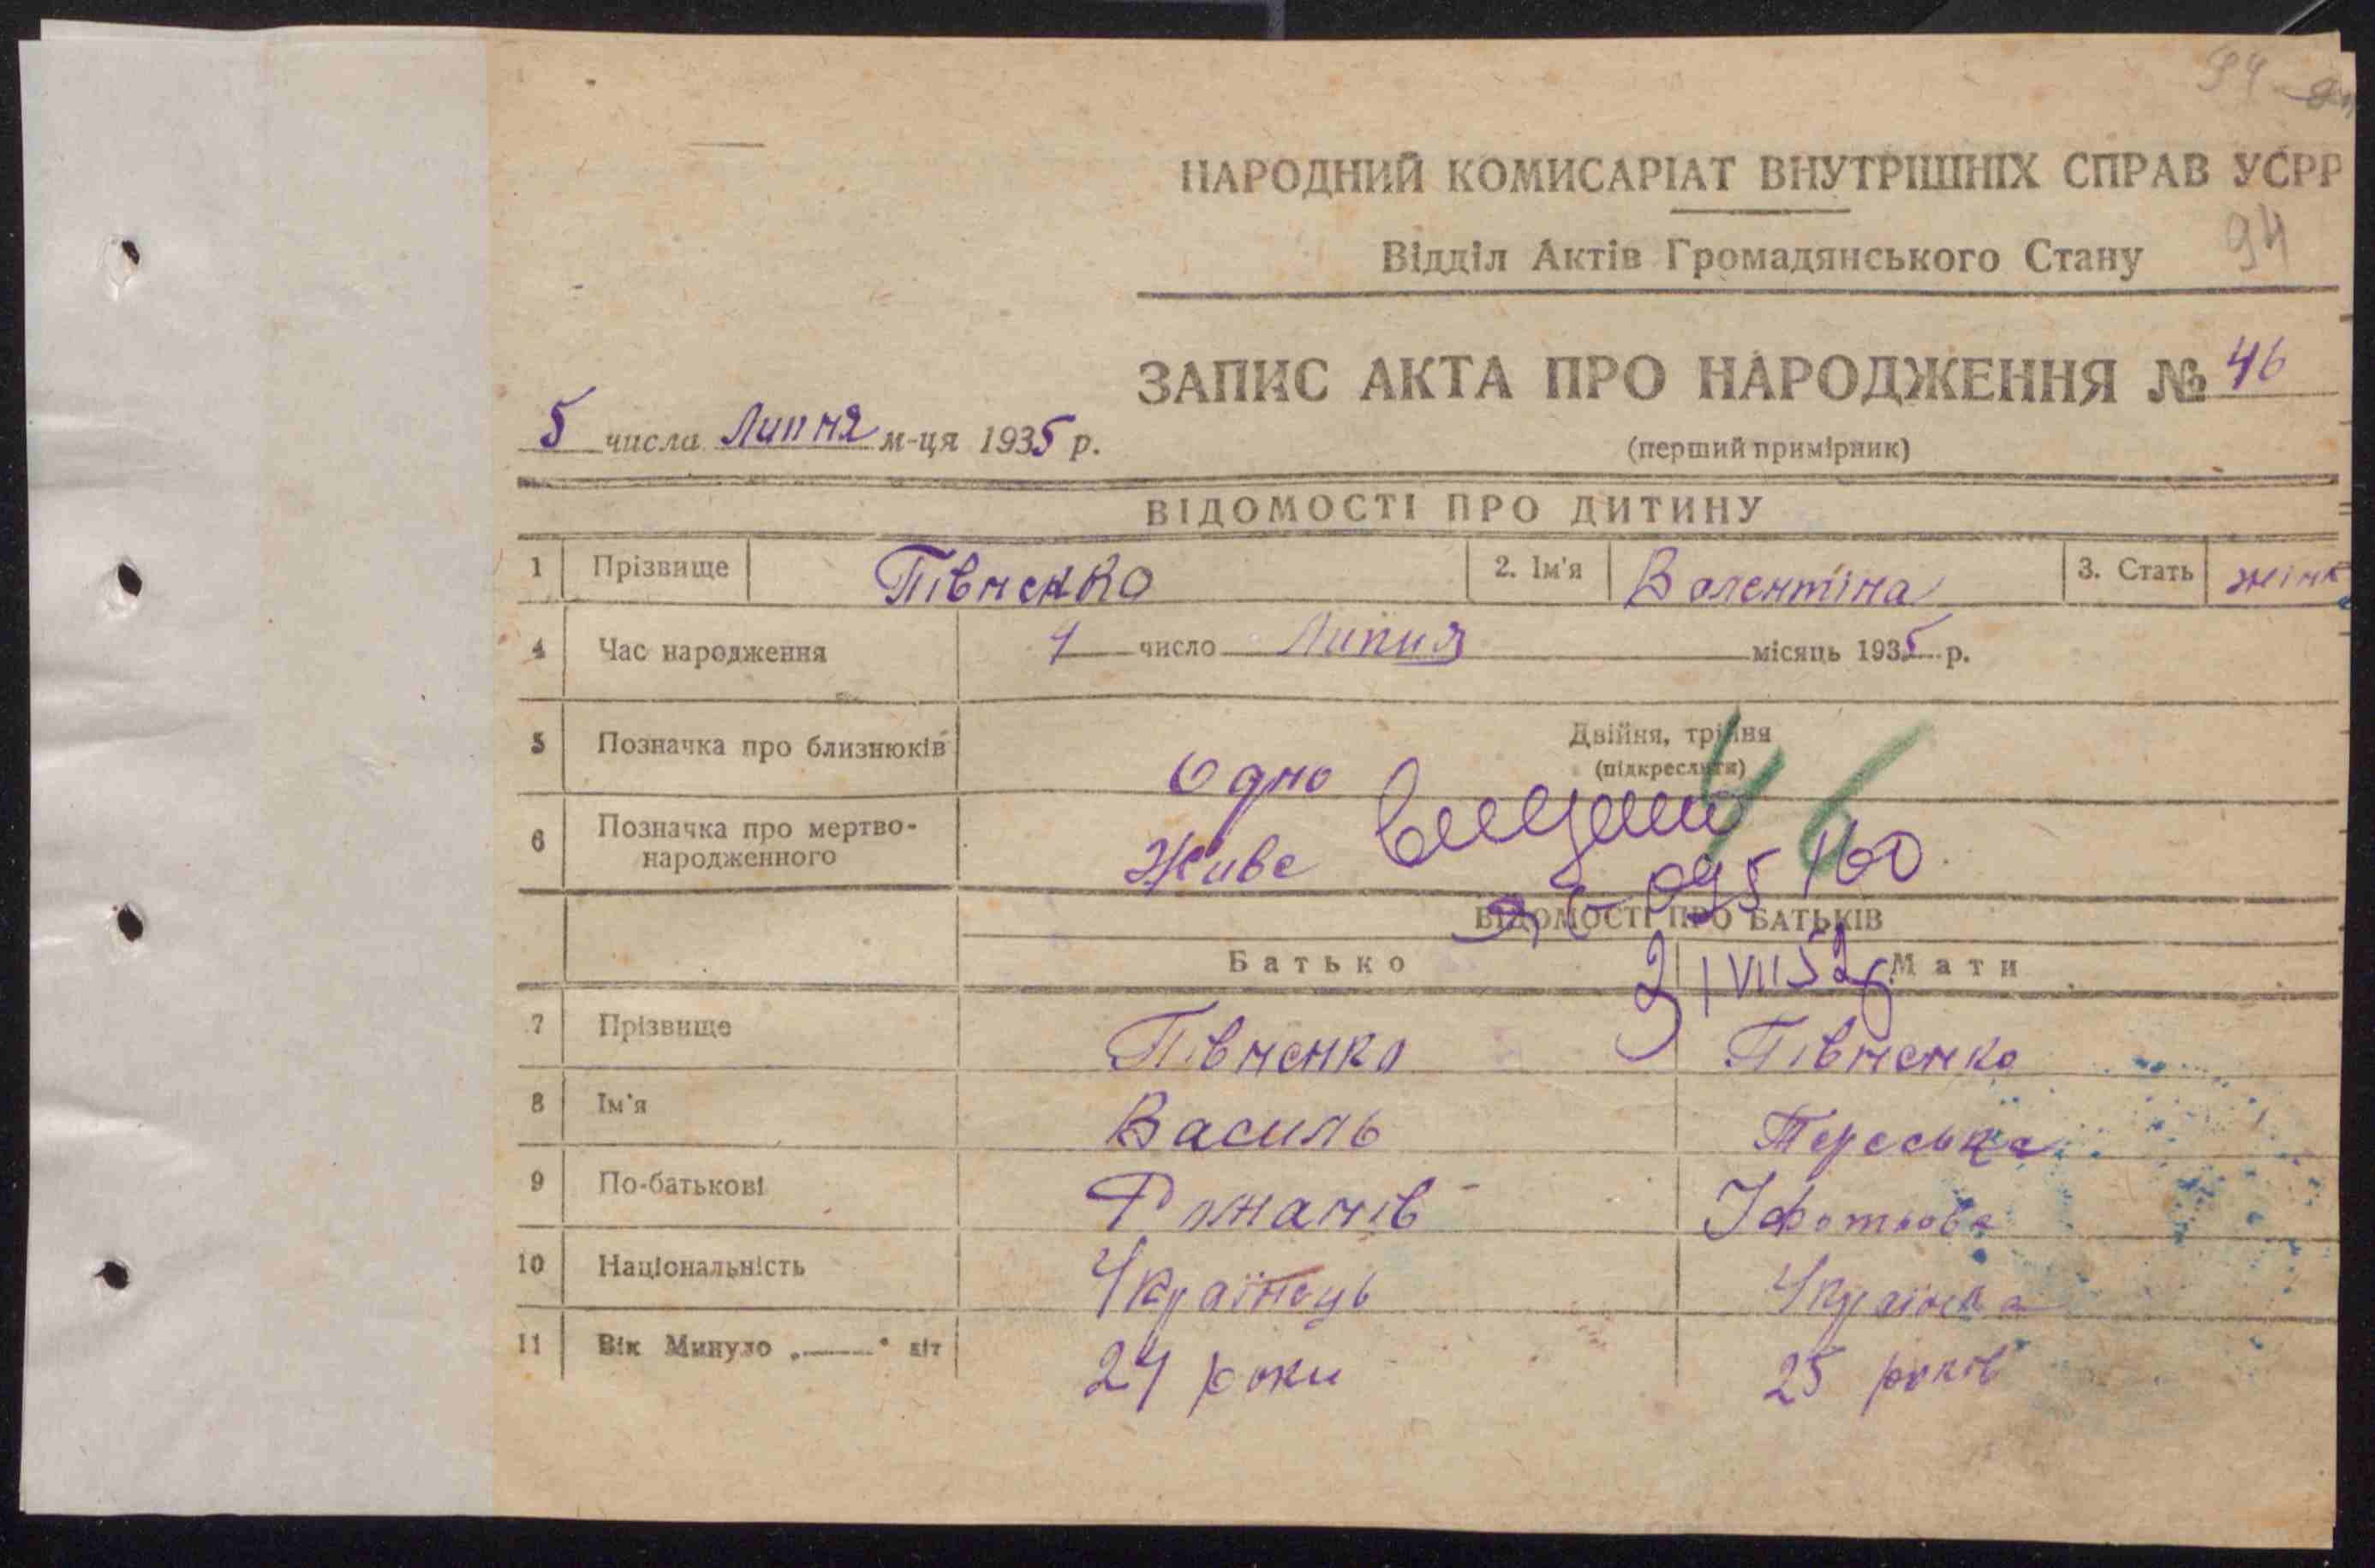 94
НАРОДНИЙ КОМИСАРІАТ ВНУТРІШНІХ СПРАВ УСРР
Відділ Актів Громадянського Стану 94
ЗАПИС АКТА ПРО НАРОДЖЕННЯ № 46
5 числа Липня м-ця 1935 р.
(перший примірник)
ВІДОМОСТІ ПРО ДИТИНУ
1 Прізвище Півненко 2. Ім'я Валентіна 3. Стать жінк
4 Час народження число Липня місяць 1935 р.
5 Позначка про близнюків Одно Двійня, трійня
(підкреслити)
46
6 Позначка про мертво-
народженного Живе
095460
ВІДОМОСТІ ПРО БАТЬКІВ
Батько Мати
VII 52
7 Прізвище Півненко Півненко
8 Ім'я Василь Тереська
9 По-батькові Романів
10 Національність Українець Українка
11 Вік Минуло „——“ літ 24 роки 25 років